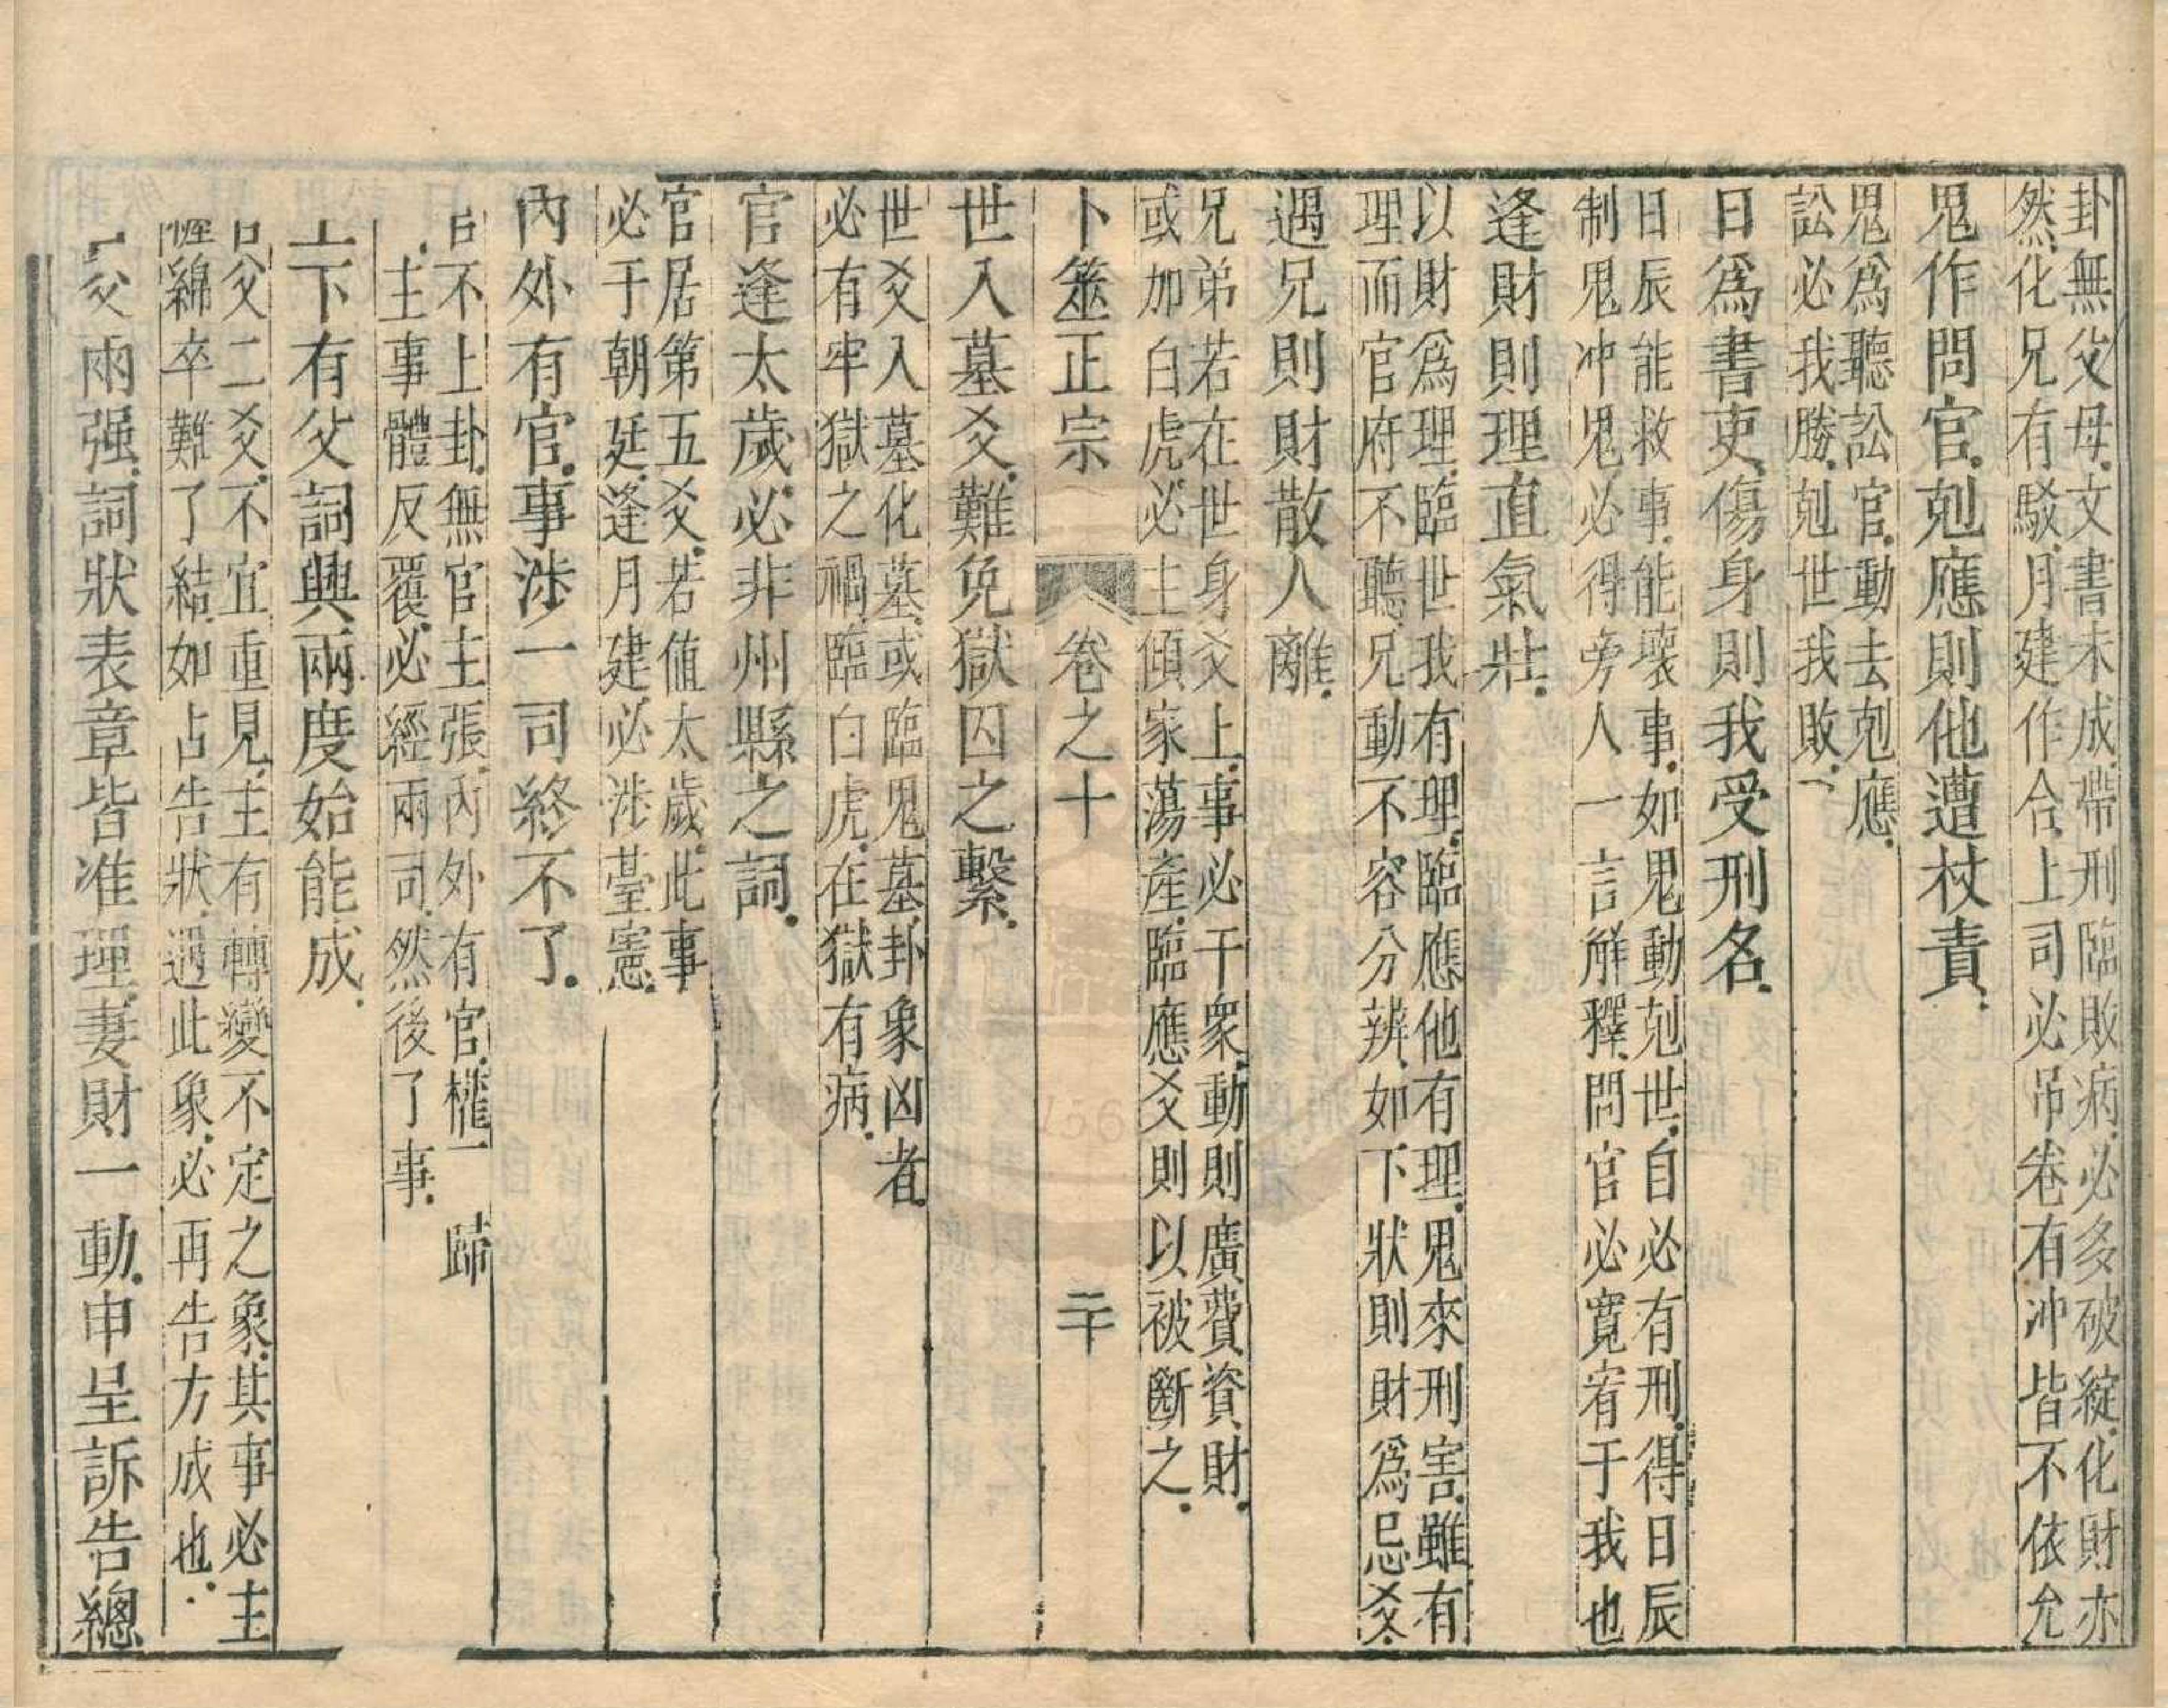 卦無父母.文書未成.帶刑臨敗病.必多破綻.化財亦
然.化兄有駁.月建作合.上司必吊卷.有冲皆不依允
鬼作問官.剋應則他遭杖責.
鬼爲聽訟官.動去剋應.
訟必我勝.剋世我敗.
日爲書吏.傷身則我受刑名.
日辰能救事.能壞事.如鬼動剋世.自必有刑.得日辰
制鬼冲鬼.必得旁人一言解釋.問官必寬宥于我也
逢財則理直氣壯.
以財爲理.臨世我有理.臨應他有理.鬼來刑害.雖有
理而官府不聽.兄動不容分辨.如下狀則財爲忌爻.
遇兄則財散人離.
兄弟若在世身爻上.事必干衆.動則廣費資財.
或加白虎.必主傾家蕩產.臨應爻則以被斷之.
卜筮正宗 卷之十 二十
世入墓爻.難免獄囚之繫.
世爻入墓化墓.或臨鬼墓.卦象凶者.
必有牢獄之禍.臨白虎.在獄有病.
官逢太歲.必非州縣之詞.
官居第五爻.若值太歲.此事
必于朝廷.逢月建.必涉臺憲.
內外有官.事涉一司終不了.
不上卦.無官主張.內外有官.權 歸
主事體反覆.必經兩司.然後了事.
下有父.詞興兩度始能成.
父二爻.不宜重見.主有轉變不定之象.其事必主
綿.卒難了結.如占告狀.遇此象.必再告方成也.
父兩强.詞狀表章皆准理.妻財一動.申呈訴告總